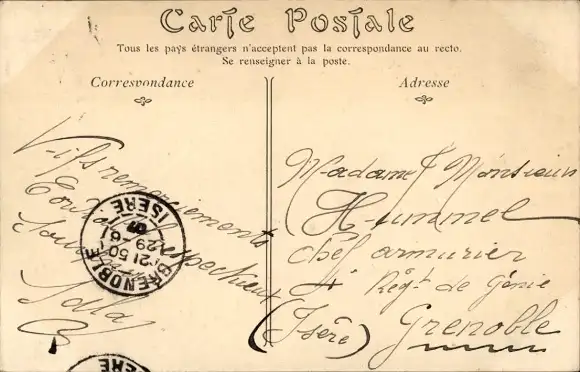 Carte Postale
Tous les pays étrangers n'acceptent pas la correspondance au recto.
Se renseigner à la poste.
Correspondance
Adresse
Vifs remerciements
respectueux
Madame & Monsieur
Hummel
chef armurier
4e Régt de Génie
Grenoble
(Isère)
GRENOBLE
ISÈRE
21 50
29 -6
ERE